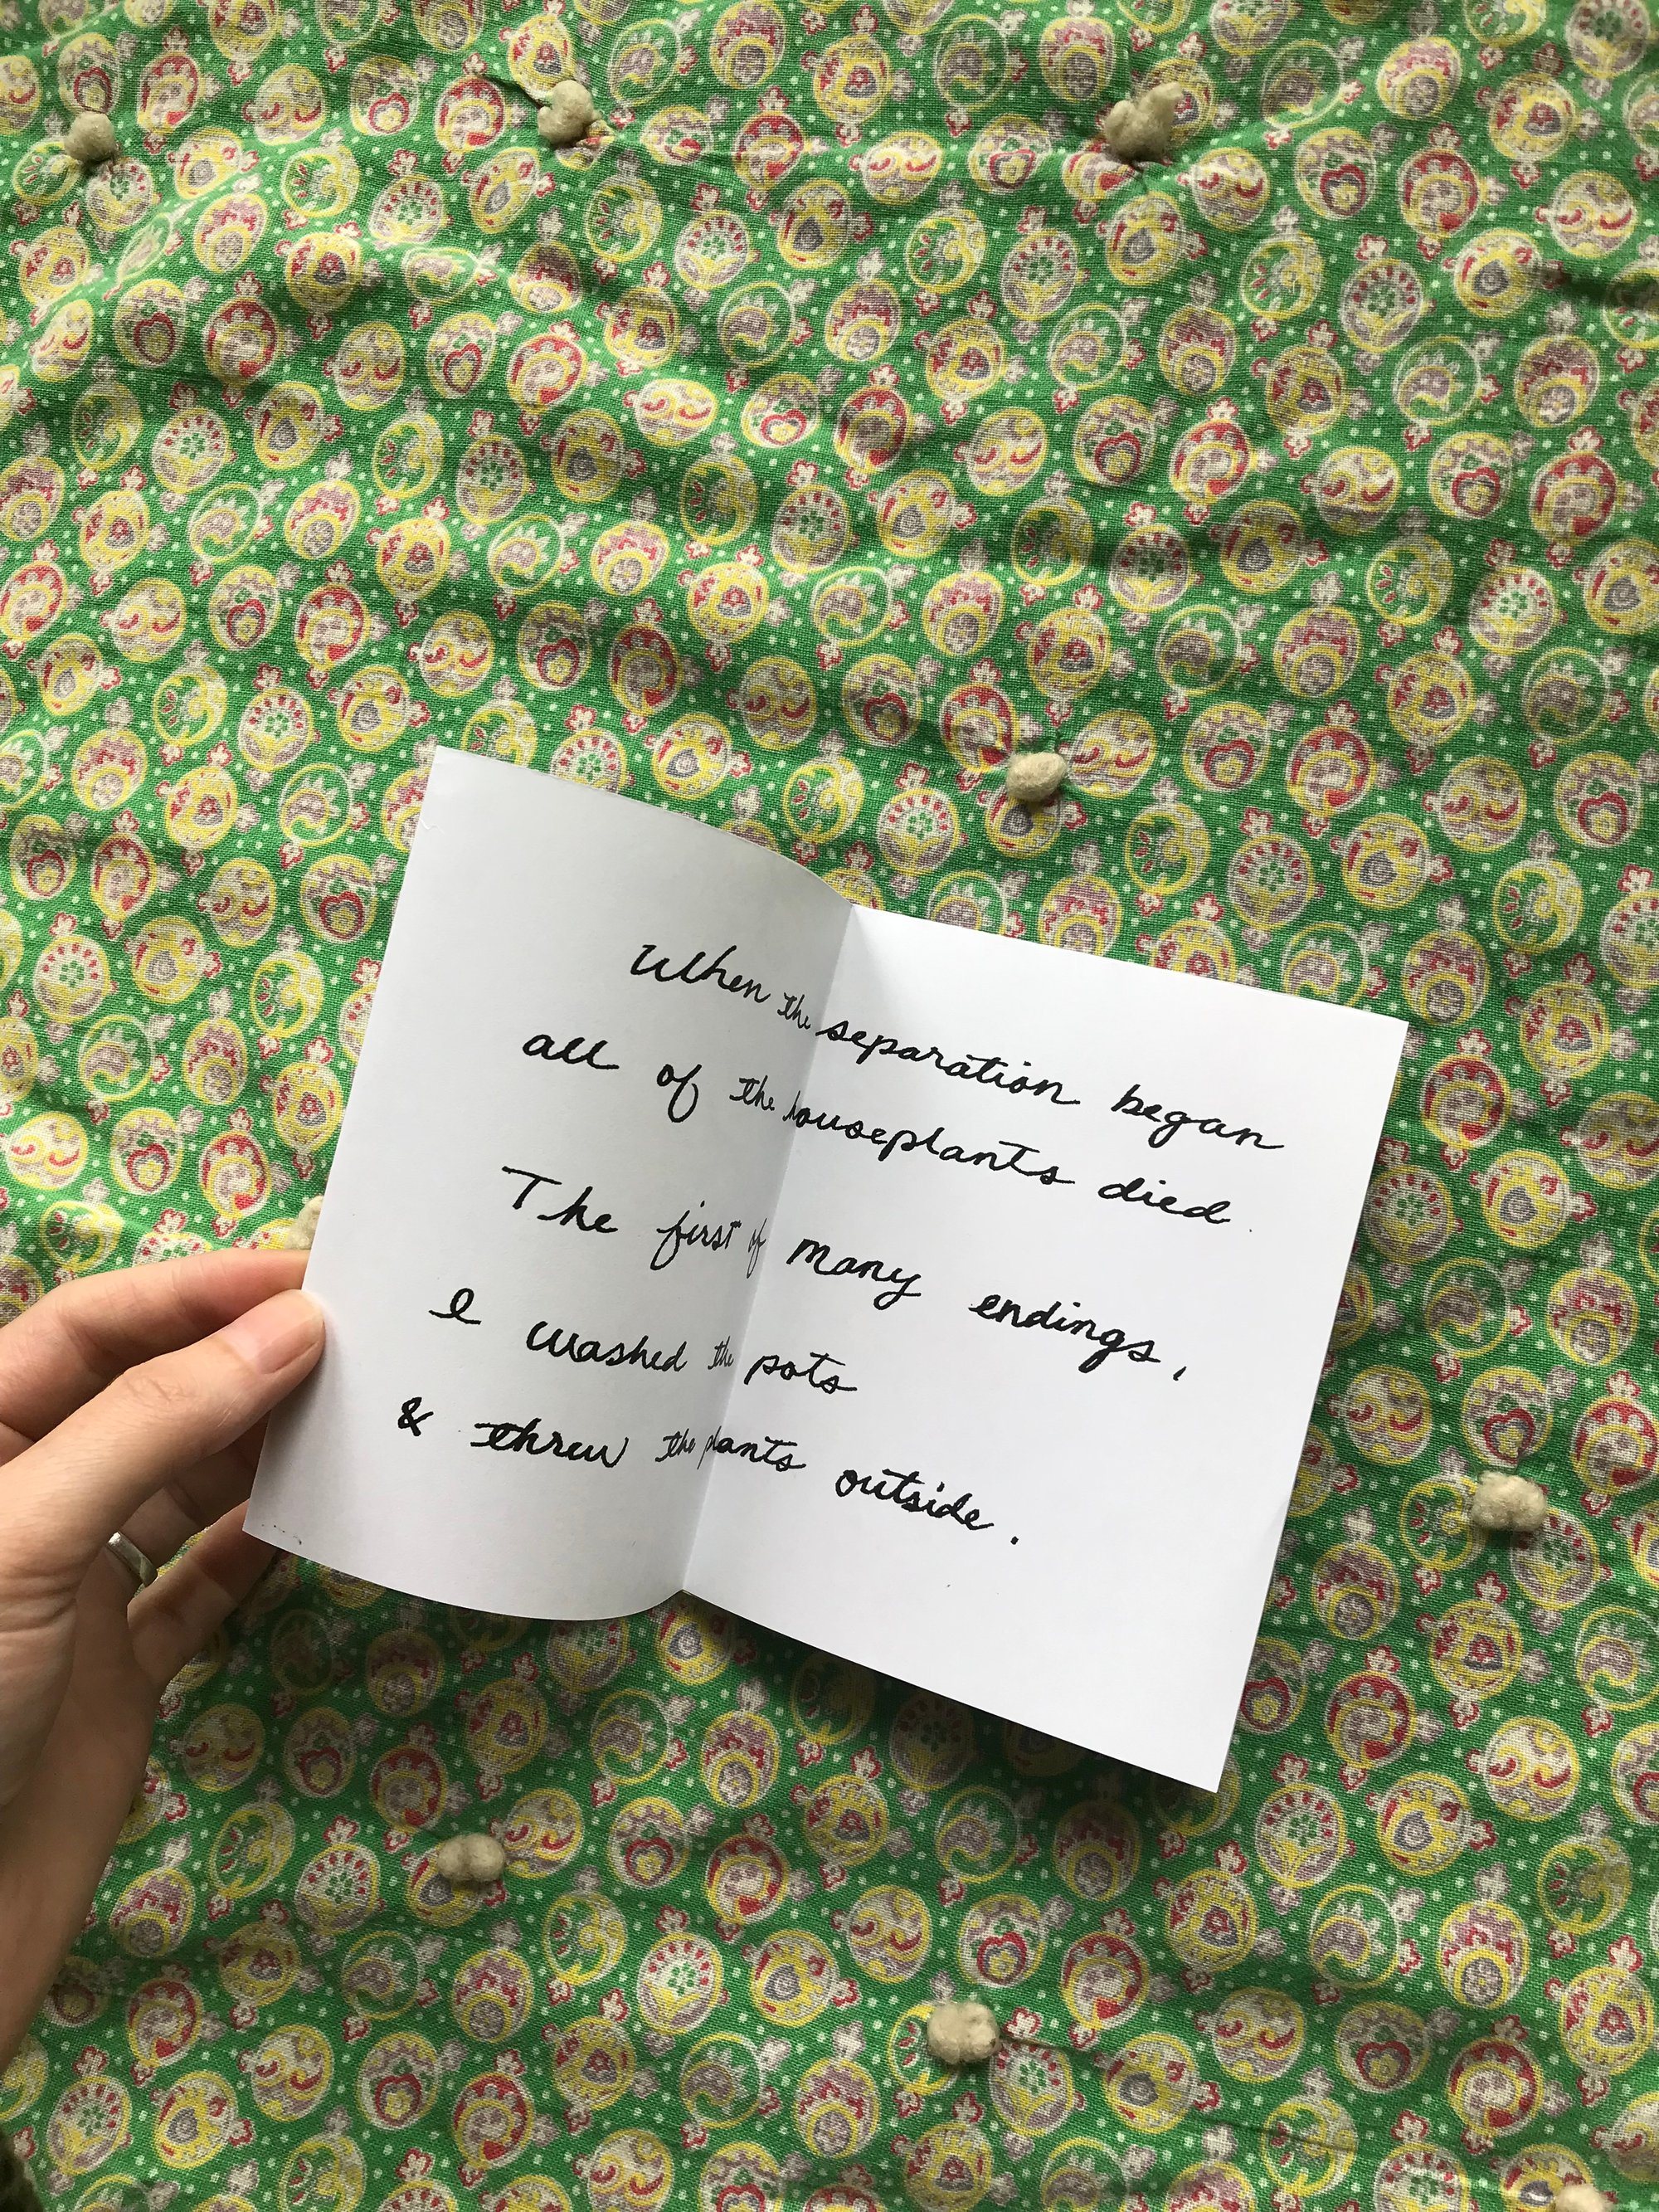 When the separation began
all of the houseplants died.
The first of many endings,
I washed the pots
& threw the plants outside.